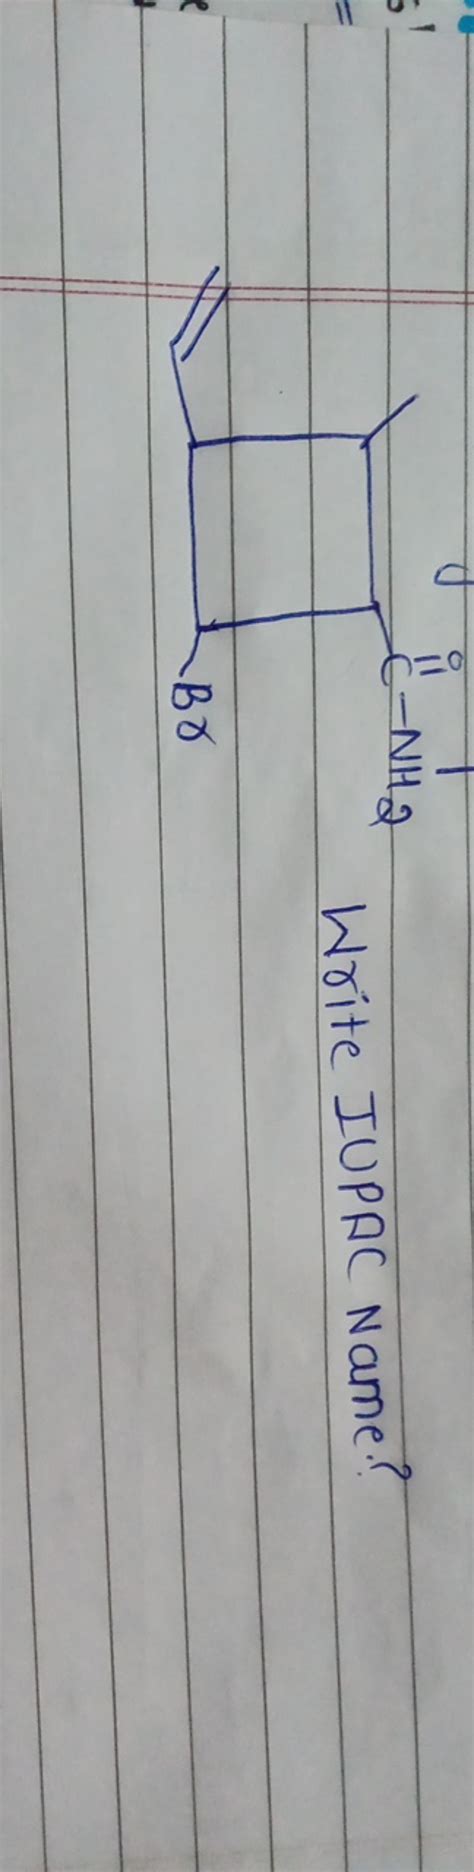 O
C-NH2
Br
Write IUPAC Name?